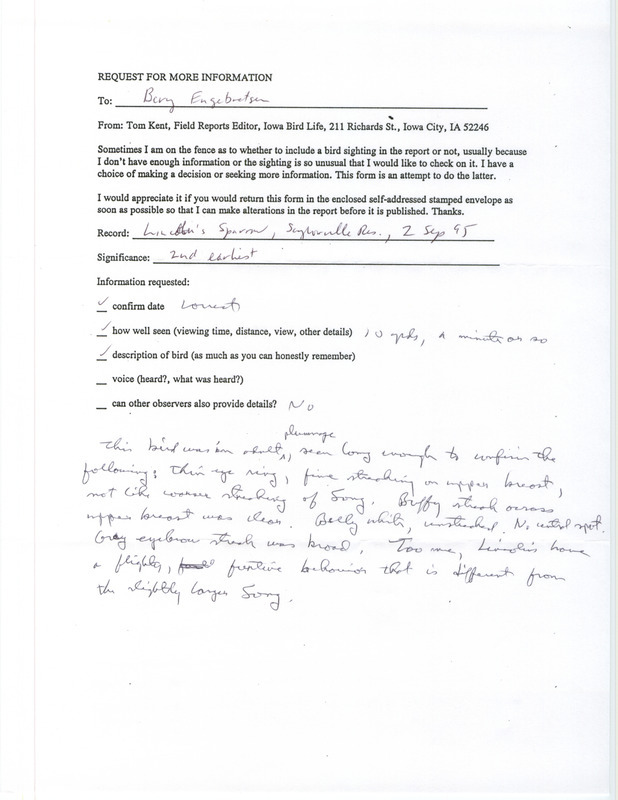 REQUEST FOR MORE INFORMATION
To: Bery Engebretsen
From: Tom Kent, Field Reports Editor, Iowa Bird Life, 211 Richards St., Iowa City, IA 52246
Sometimes I am on the fence as to whether to include a bird sighting in the report or not, usually because
I don't have enough information or the sighting is so unusual that I would like to check on it. I have a
choice of making a decision or seeking more information. This form is an attempt to do the latter.
I would appreciate it if you would return this form in the enclosed self-addressed stamped envelope as
soon as possible so that I can make alterations in the report before it is published. Thanks.
Record: Lincoln's Sparrow, Saylorville Res., 2 Sep 95
Significance: 2nd earliest
Information requested:
✓ confirm date correct
✓ how well seen (viewing time, distance, view, other details) 10 yds, a minute or so
✓ description of bird (as much as you can honestly remember)
voice (heard?, what was heard?)
can other observers also provide details? No
plumage
This bird was in adult, seen long enough to confirm the
following: thin eye ring, fine streaking on upper breast,
not like coarse streaking of Song. Buffy streak across
upper breast was clear. Belly white, unstreaked. No central spot.
Gray eyebrow streak was broad. Too me, Lincoln's have
a flighty, furtive behavior that is different from
the slightly larger Song.